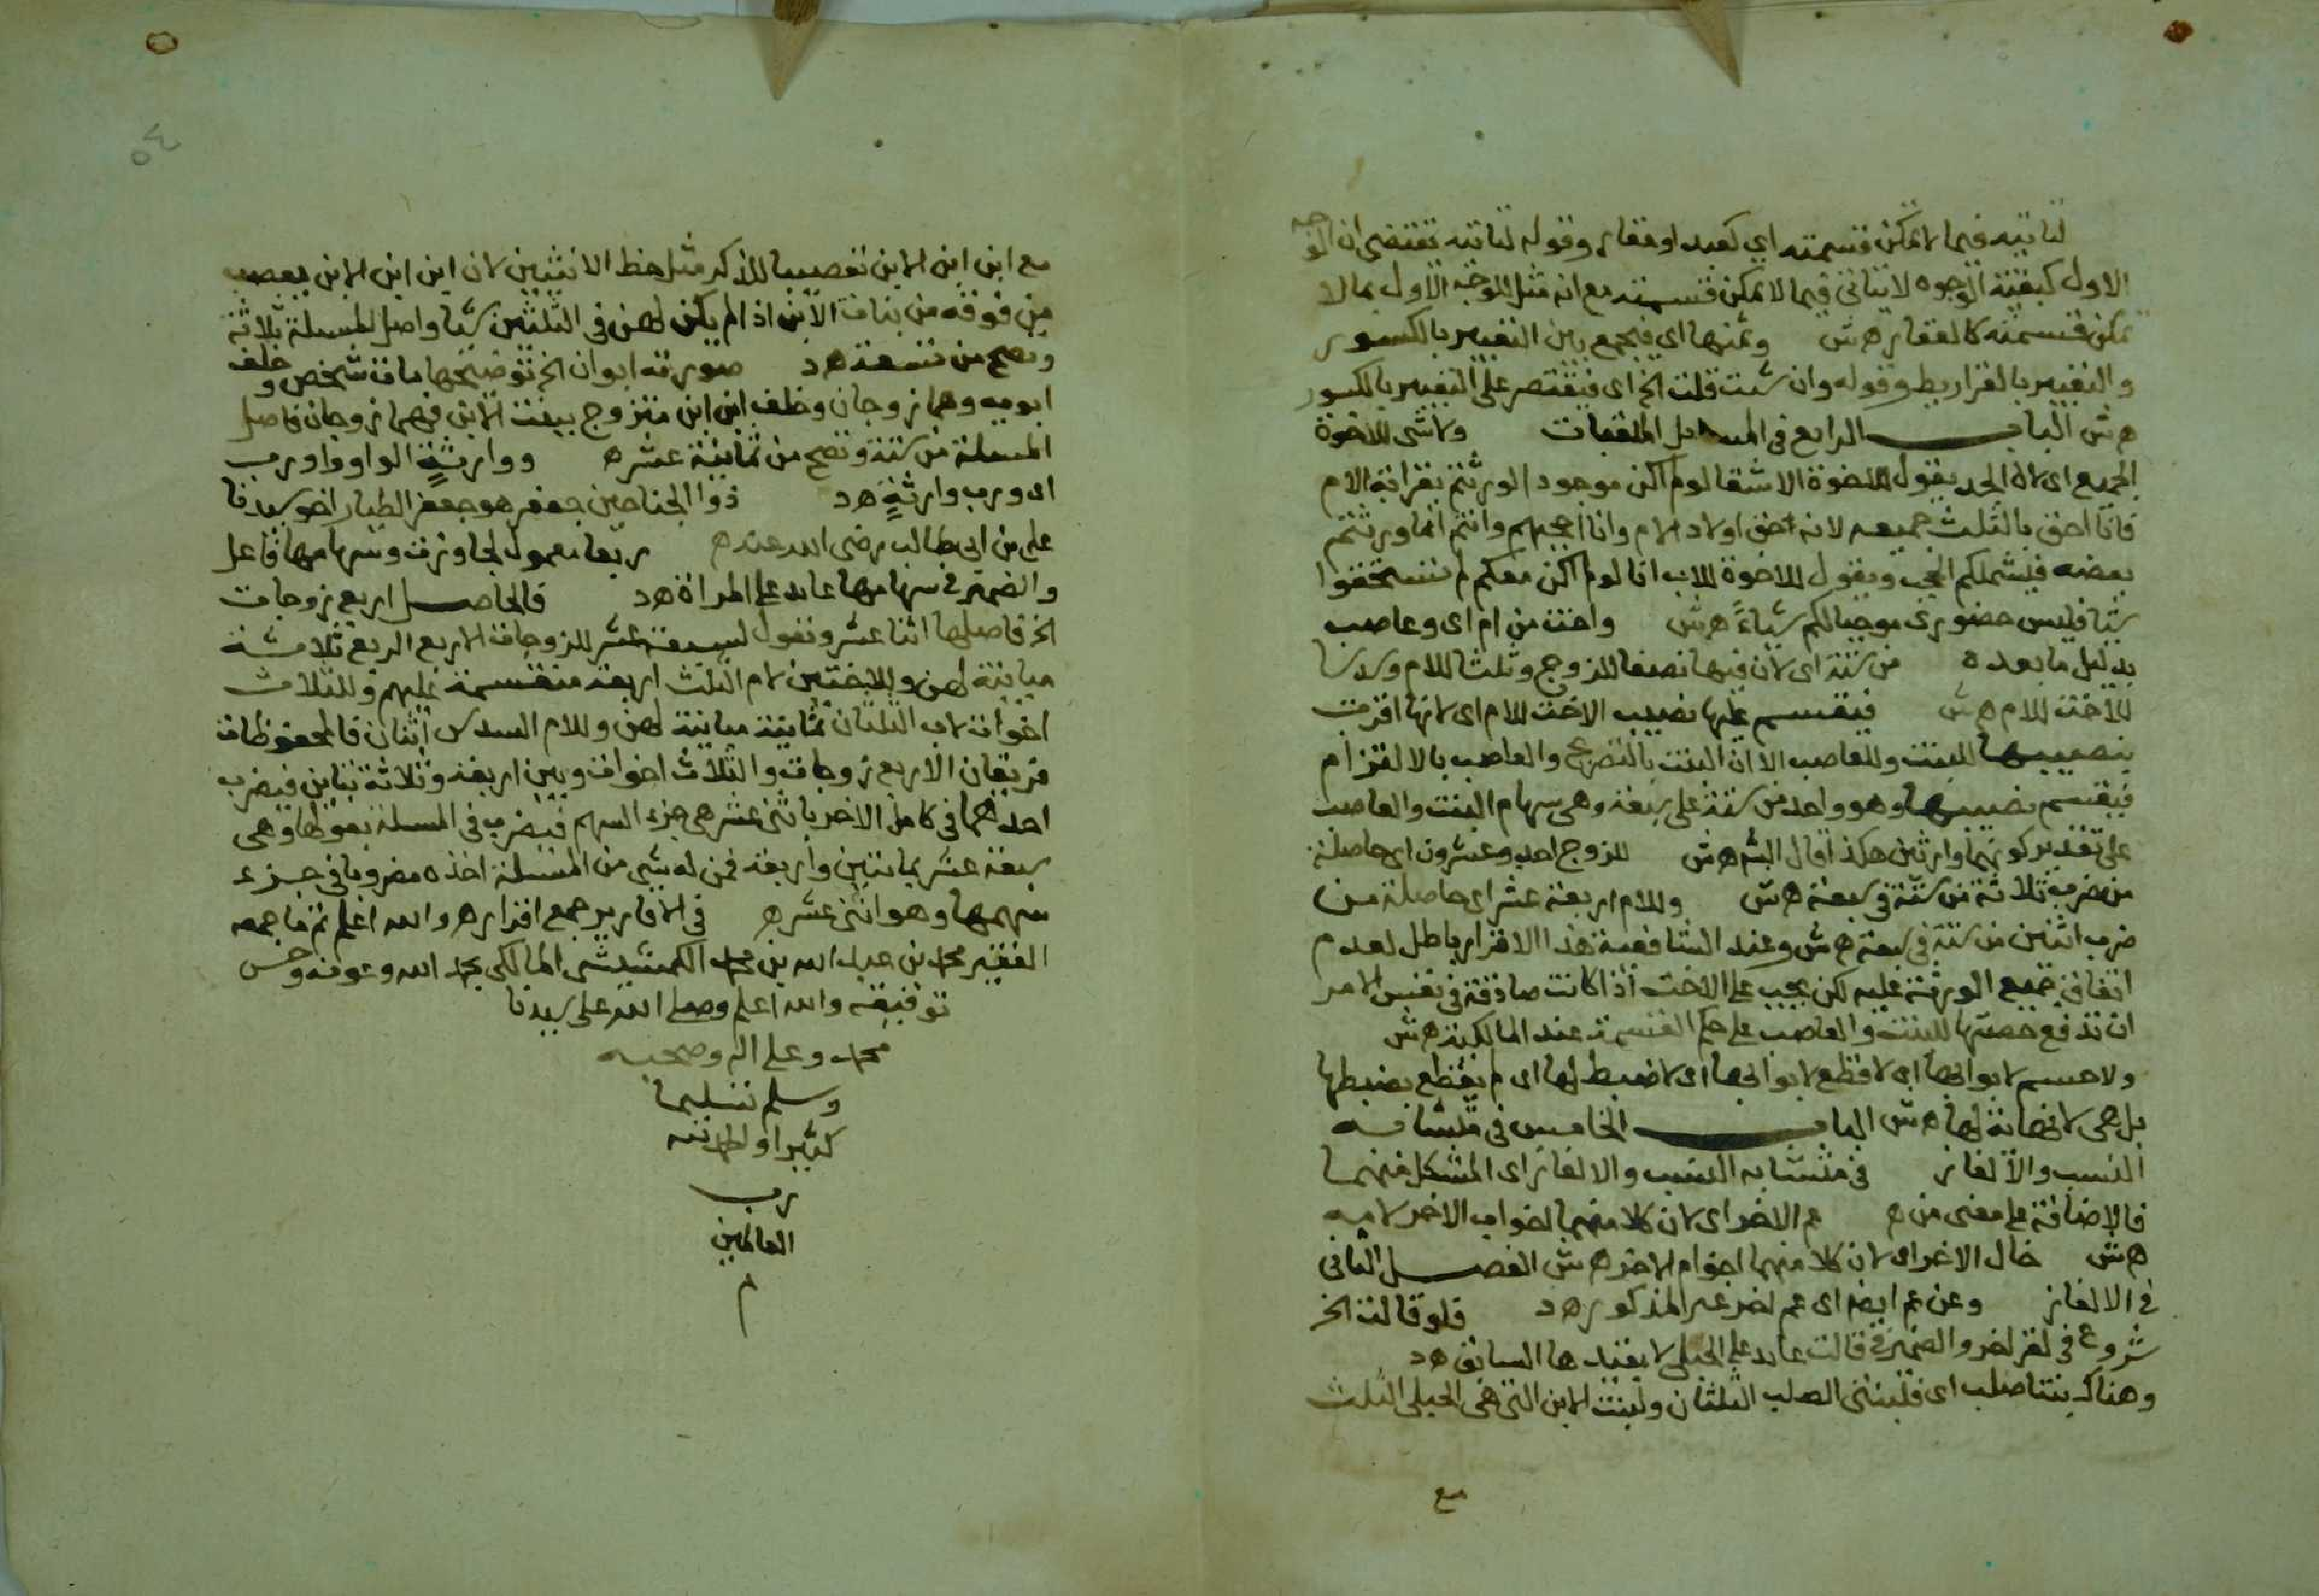 لتاتيه فيما لا تمكن قسمته اي كعبد او عقار وقوله لتاتيه تقتضي ان الوجه
الاول كبقية الوجوه لا يتاتى فيما لا تمكن قسمته مع انه مثل للوجه الاول بما لا
تمكن قسمته كالعقار ه ش وثمنها اي فيجمع بين التعبير بالكسور
والتعبير بالقراريط وقوله وان شئت قلت الخ اي فيقتصر على التعبير بالكسور
ه ش الباب الرابع في المسايل الملقبات ولا شى للاخوة
الجميع اي لان الجد يقول للاخوة الاشقا لو لم اكن موجودا لورثتم بقرابة الام
فانا احق بالثلث جميعه لانه احق اولاد الام وانا احجبهم وانتم انما ورثتم
بعضه فيشملكم الحجب ويقول للاخوة للاب انا لو لم اكن معكم لم تستحقوا
شيا فليس حضوري موجبا لكم شياءً ه ش واخت من ام اي وعاصب
بدليل ما بعده من ستة اي لان فيها نصفا للزوج وثلثا للام وسدسا
للاخت للام ه ش فيقسم عليها نصيب الاخت للام اي لانها اقرت
بنصيبها للبنت وللعاصب الا ان البنت بالتصريح والعاصب بالالتزام
فيقسم نصيبها وهو واحد من ستة على سبعة وهي سهام البنت والعاصب
على تقدير كونهما وارثين هكذا قال الش ه ش للزوج احد وعشرون اي حاصلة
من ضرب ثلاثة من ستة في سبعة ه ش وللام اربعة عشر اي حاصلة من
ضرب اثنين من ستة في سبعة ه ش وعند الشافعية هذا الاقرار باطل لعدم
اتفاق جميع الورثة عليه لكن يجب على الاخت اذا كانت صادقة في نفس الامر
ان تدفع حصتها للبنت والعاصب على حكم القسمة عند المالكية ه ش
ولا حسم لابوابها اي لا قطع لابوابها اي لا ضبط لها اي لم يقطع بضبطها
بل هي لا نهاية لها ه ش الباب الخامس في متشابه
النسب والالغاز في متشابه النسب والالغاز اي المشكل منهما
فالاضافة على معنى من ه عم الاخر اي لان كلا منهما اخو اب الاخر لامه
ه ش خال الاخر اي لان كلا منهما اخو ام الاخر ه ش الفصل الثاني
في الالغاز وعن عم ايضا اي عم اخر غير المذكور ه د فلو قالت الخ
شروع في لغز اخر والضمير في قالت عايد على الحبلى لا بقيدها السابق ه د
وهناك بنتا صلب اي فلبنتي الصلب الثلثان ولبنت الابن التي هي الحبلى الثلث
مع
٥٤
مع ابن ابن الابن تعصيبا للذكر مثل حظ الانثيين لان ابن ابن الابن يعصب
من فوقه من بنات الابن اذا لم يكن لهن في الثلثين شيا واصل المسئلة ثلاثة
وتصح من تسعة ه د صورته ابوان الخ توضيحها مات شخص وخلف
ابويه وهما زوجان وخلف ابن ابن متزوج ببنت الابن فهما زوجان فاصل
المسئلة من ستة وتصح من ثمانية عشر ه ووارثةٍ الواو واو رب
اي ورب وارثةٍ ه د ذوا الجناحين جعفر هو جعفر الطيار اخو سيدنا
علي بن ابي طالب رضي الله عنه ه ربعا معمول لحاوزت وسهامها فاعل
والضمير في سهامها عايد على المراة ه د فالحاصل اربع زوجات
الخ فاصلها اثنا عشر وتعول لسبعة عشر للزوجات الاربع الربع ثلاثة
مباينة لهن وللاختين لام الثلث اربعة منقسمة عليهم وللثلاث
اخوات لاب الثلثان ثمانية مباينة لهن وللام السدس اثنان فالمحفوظات
فريقان الاربع زوجات والثلاث اخوات وبين اربعة وثلاثة تباين فيضرب
احدهما في كامل الاخر باثنى عشر هي جزء السهم فيضرب في المسئلة بعولها وهي
سبعة عشر بمائتين واربعة فمن له شي من المسئلة اخذه مضروبا في جزء
سهمها وهو اثنى عشر ه في الاقارير جمع اقرار ه والله اعلم تم ما جمعه
الفقير محمد بن عبد الله بن محمد المالكي بحمد الله وعونه وحسن
توفيقه والله اعلم وصلى الله على سيدنا
محمد وعلى اله وصحبه
وسلم تسليما
كثيرا والحمد لله
رب
العالمين
م